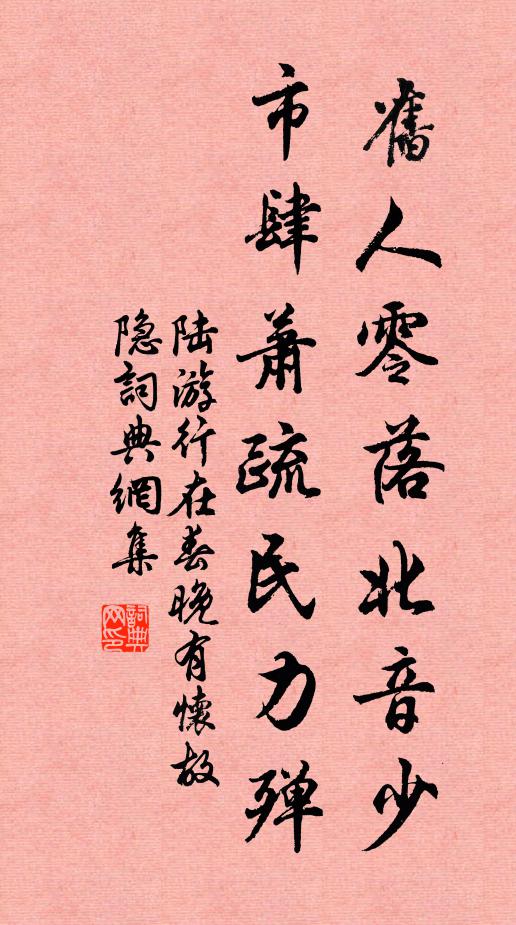 舊人零落北音少
市肆蕭疏民力殫
陆游行在春晚有懷故
隐詞典網集
詞典网印